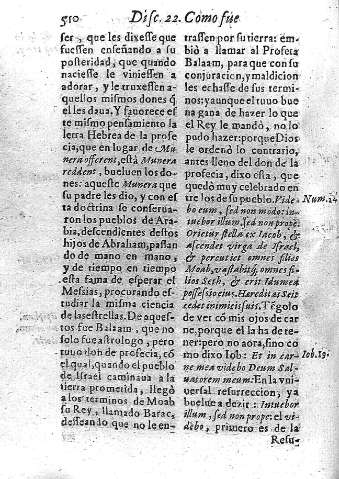 510 Disc. 22. Como fue
ser, que les dixesse que
fuessen enseñando a su
posteridad, que quando
naciesse le viniessen a
adorar, y le truxessen a-
quellos mismos dones q̃
el les daua. Y fauorece es
te mismo pensamiento la
letra Hebrea de la profe
cia, que en lugar de Mu
nera offerent, està Munera
reddent, bueluen los do-
nes: aqueste Munera que su
padre les dio, y con es-
ta doctrina se conserua-
ron los pueblos de Ara-
bia, descendientes destos
hijos de Abraham, passan
do de mano en mano,
y de tiempo en tiempo
esta fama de esperar el
Messias, procurando es-
tudiar la misma ciencia
de las estrellas. De aques-
tos fue Balaam, que no
solo fue astrologo, pero
tuuo don de profecia, cõ
el qual, quando el pueblo
de Israel caminaua a la
tierra prometida, llegò
a los terminos de Moab
su Rey, llamado Barac,
desseando que no le en-
trassen por su tierra: em-
biò a llamar al Profeta
Balaam, para que con su
conjuracion, y maldicion
les echasse de sus termi-
nos: y aunque el tuuo bue
na gana de hazer lo que
el Rey le mandò, no lo
pudo hazer: porque Dios
le ordenò lo contrario,
antes lleno del don de la
profecia, dixo esta, que
quedò muy celebrado en
tre los de su pueblo. Vide-
bo eum, sed non modo: in-
tuebor illum, sed non propè:
Orietur stella ex Iacob, &
ascendet virga de Israel,
& percutiet omnes filios
Moab, vastabitq; omnes fi-
lios Seth, & erit Idumea
possessio eius. Hereditas Seir
cedet enimicis suis. Tẽgolo
de ver cõ mis ojos de car
ne, porque èl la ha de te-
ner: pero no aora, sino co
mo dixo Iob: Et in car-
ne mea videbo Deum Sal-
uatorem meum: En la vni-
uersal resurreccion, ya
buelue a dezir: Intuebor
illum, sed non propè: el vi-
debo, primero es de la
Resu-
Num. 24
Iob. 19.